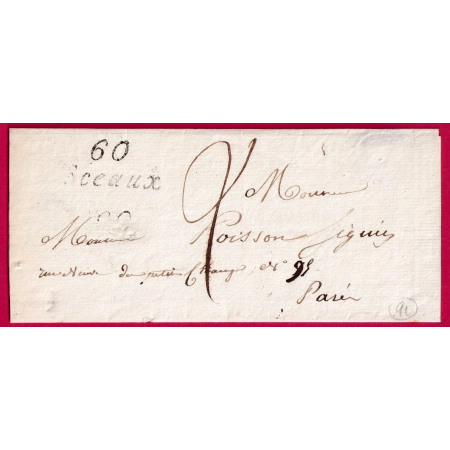 60
Sceaux
60
2
Monsieur
Monsieur Poisson
rue Neuve des petits Champs N° 95
Paris
91